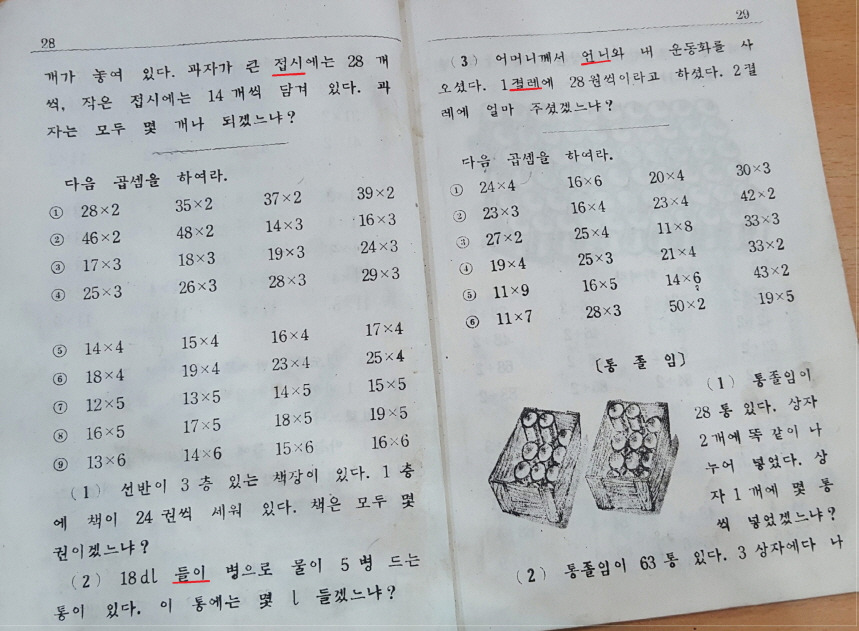 28
개가 놓여 있다. 과자가 큰 접시에는 28 개
씩, 작은 접시에는 14 개씩 담겨 있다. 과
자는 모두 몇 개나 되겠느냐?
다음 곱셈을 하여라.
① 28×2 35×2 37×2 39×2
② 46×2 48×2 14×3 16×3
③ 17×3 18×3 19×3 24×3
④ 25×3 26×3 28×3 29×3
⑤ 14×4 15×4 16×4 17×4
⑥ 18×4 19×4 23×4 25×4
⑦ 12×5 13×5 14×5 15×5
⑧ 16×5 17×5 18×5 19×5
⑨ 13×6 14×6 15×6 16×6
(1) 선반이 3 층 있는 책장이 있다. 1 층
에 책이 24 권씩 세워 있다. 책은 모두 몇
권이겠느냐?
(2) 18dl 들이 병으로 물이 5 병 드는
통이 있다. 이 통에는 몇 l 들겠느냐?
29
(3) 어머니께서 언니와 내 운동화를 사
오셨다. 1 켤레에 28 원씩이라고 하셨다. 2 켤
레에 얼마 주셨겠느냐?
다음 곱셈을 하여라.
① 24×4 16×6 20×4 30×3
② 23×3 16×4 23×4 42×2
③ 27×2 25×4 11×8 33×3
④ 19×4 25×3 21×4 33×2
⑤ 11×9 16×5 14×6 43×2
⑥ 11×7 28×3 50×2 19×5
[통 졸 임]
(1) 통졸임이
28 통 있다. 상자
2 개에 똑 같이 나
누어 넣었다. 상
자 1 개에 몇 통
씩 넣었겠느냐?
(2) 통졸임이 63 통 있다. 3 상자에다 나